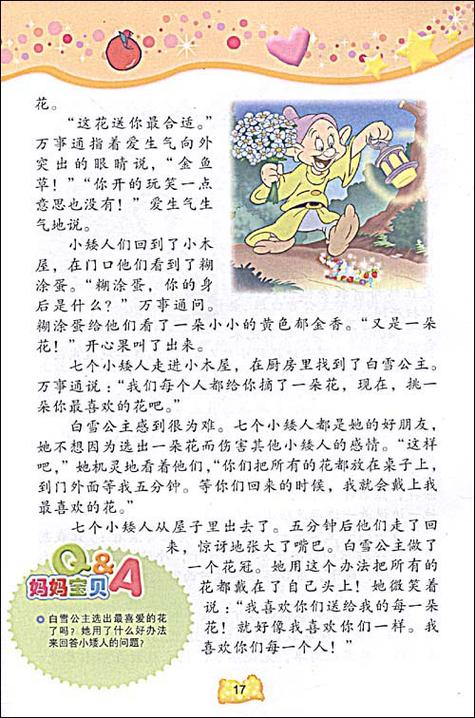 花。
“这花送你最合适。”
万事通指着爱生气向外
突出的眼睛说，“金鱼
草！”“你开的玩笑一点
意思也没有！”爱生气生
气地说。
小矮人们回到了小木
屋，在门口他们看到了糊
涂蛋。“糊涂蛋，你的身
后是什么？”万事通问。
糊涂蛋给他们看了一朵小小的黄色郁金香。“又是一朵
花！”开心果叫了出来。
七个小矮人走进小木屋，在厨房里找到了白雪公主。
万事通说：“我们每个人都给你摘了一朵花，现在，挑一
朵你最喜欢的花吧。”
白雪公主感到很为难。七个小矮人都是她的好朋友，
她不想因为选出一朵花而伤害其他小矮人的感情。“这样
吧，”她机灵地看着他们，“你们把所有的花都放在桌子上，
到门外面等我五分钟。等你们回来的时候，我就会戴上我
最喜欢的花。”
七个小矮人从屋子里出去了。五分钟后他们走了回
来，惊讶地张大了嘴巴。白雪公主做了
一个花冠。她用这个办法把所有的
花都戴在了自己头上！她微笑着
说：“我喜欢你们送给我的每一朵
花！就好像我喜欢你们一样。我
喜欢你们每一个人！”
Q&A
妈妈宝贝
白雪公主选出最喜爱的花
了吗？她用了什么好办法
来回答小矮人的问题？
17